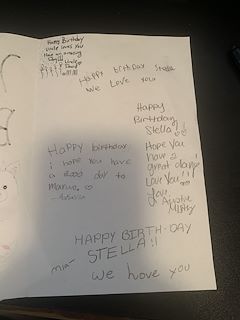 Happy Birthday
Uncle loves you
Have an amazing
Happy birthday Stella
We Love you
Happy
Birthday
Stella
Hope you
have a
great day
Love you!!
love
Mistry
Happy birthday
i hope you have
a good day to
HAPPY BIRTH-DAY
STELLA!!
mia
We love you